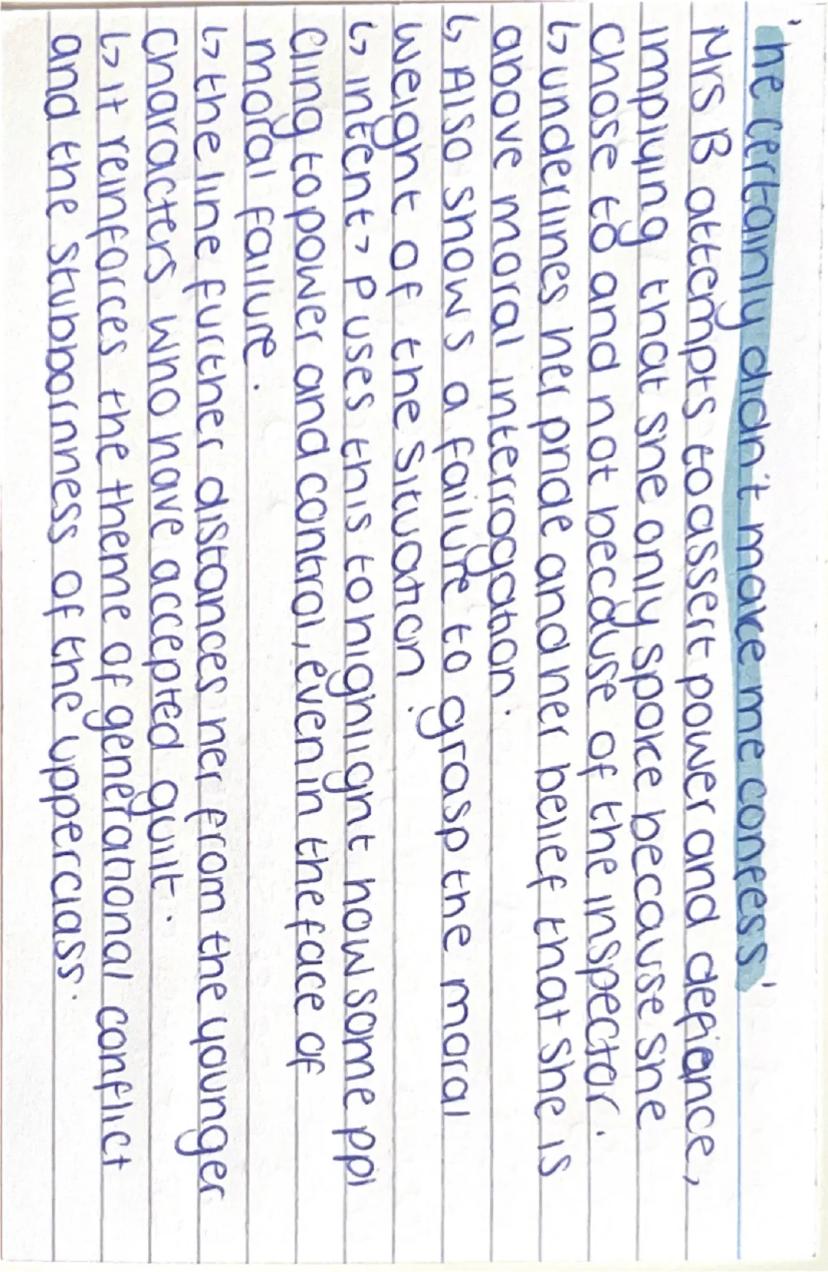 'he certainly didn't make me confess'
Mrs B attempts to assert power and defiance,
implying that she only spoke because she
chose to and not because of the inspector.
↳ underlines her pride and her belief that she is
above moral interrogation.
↳ Also shows a failure to grasp the moral
weight of the situation.
↳ intent > P uses this to highlight how some ppl
cling to power and control, even in the face of
moral failure.
↳ the line further distances her from the younger
characters who have accepted guilt.
↳ it reinforces the theme of generational conflict
and the stubbornness of the upperclass.